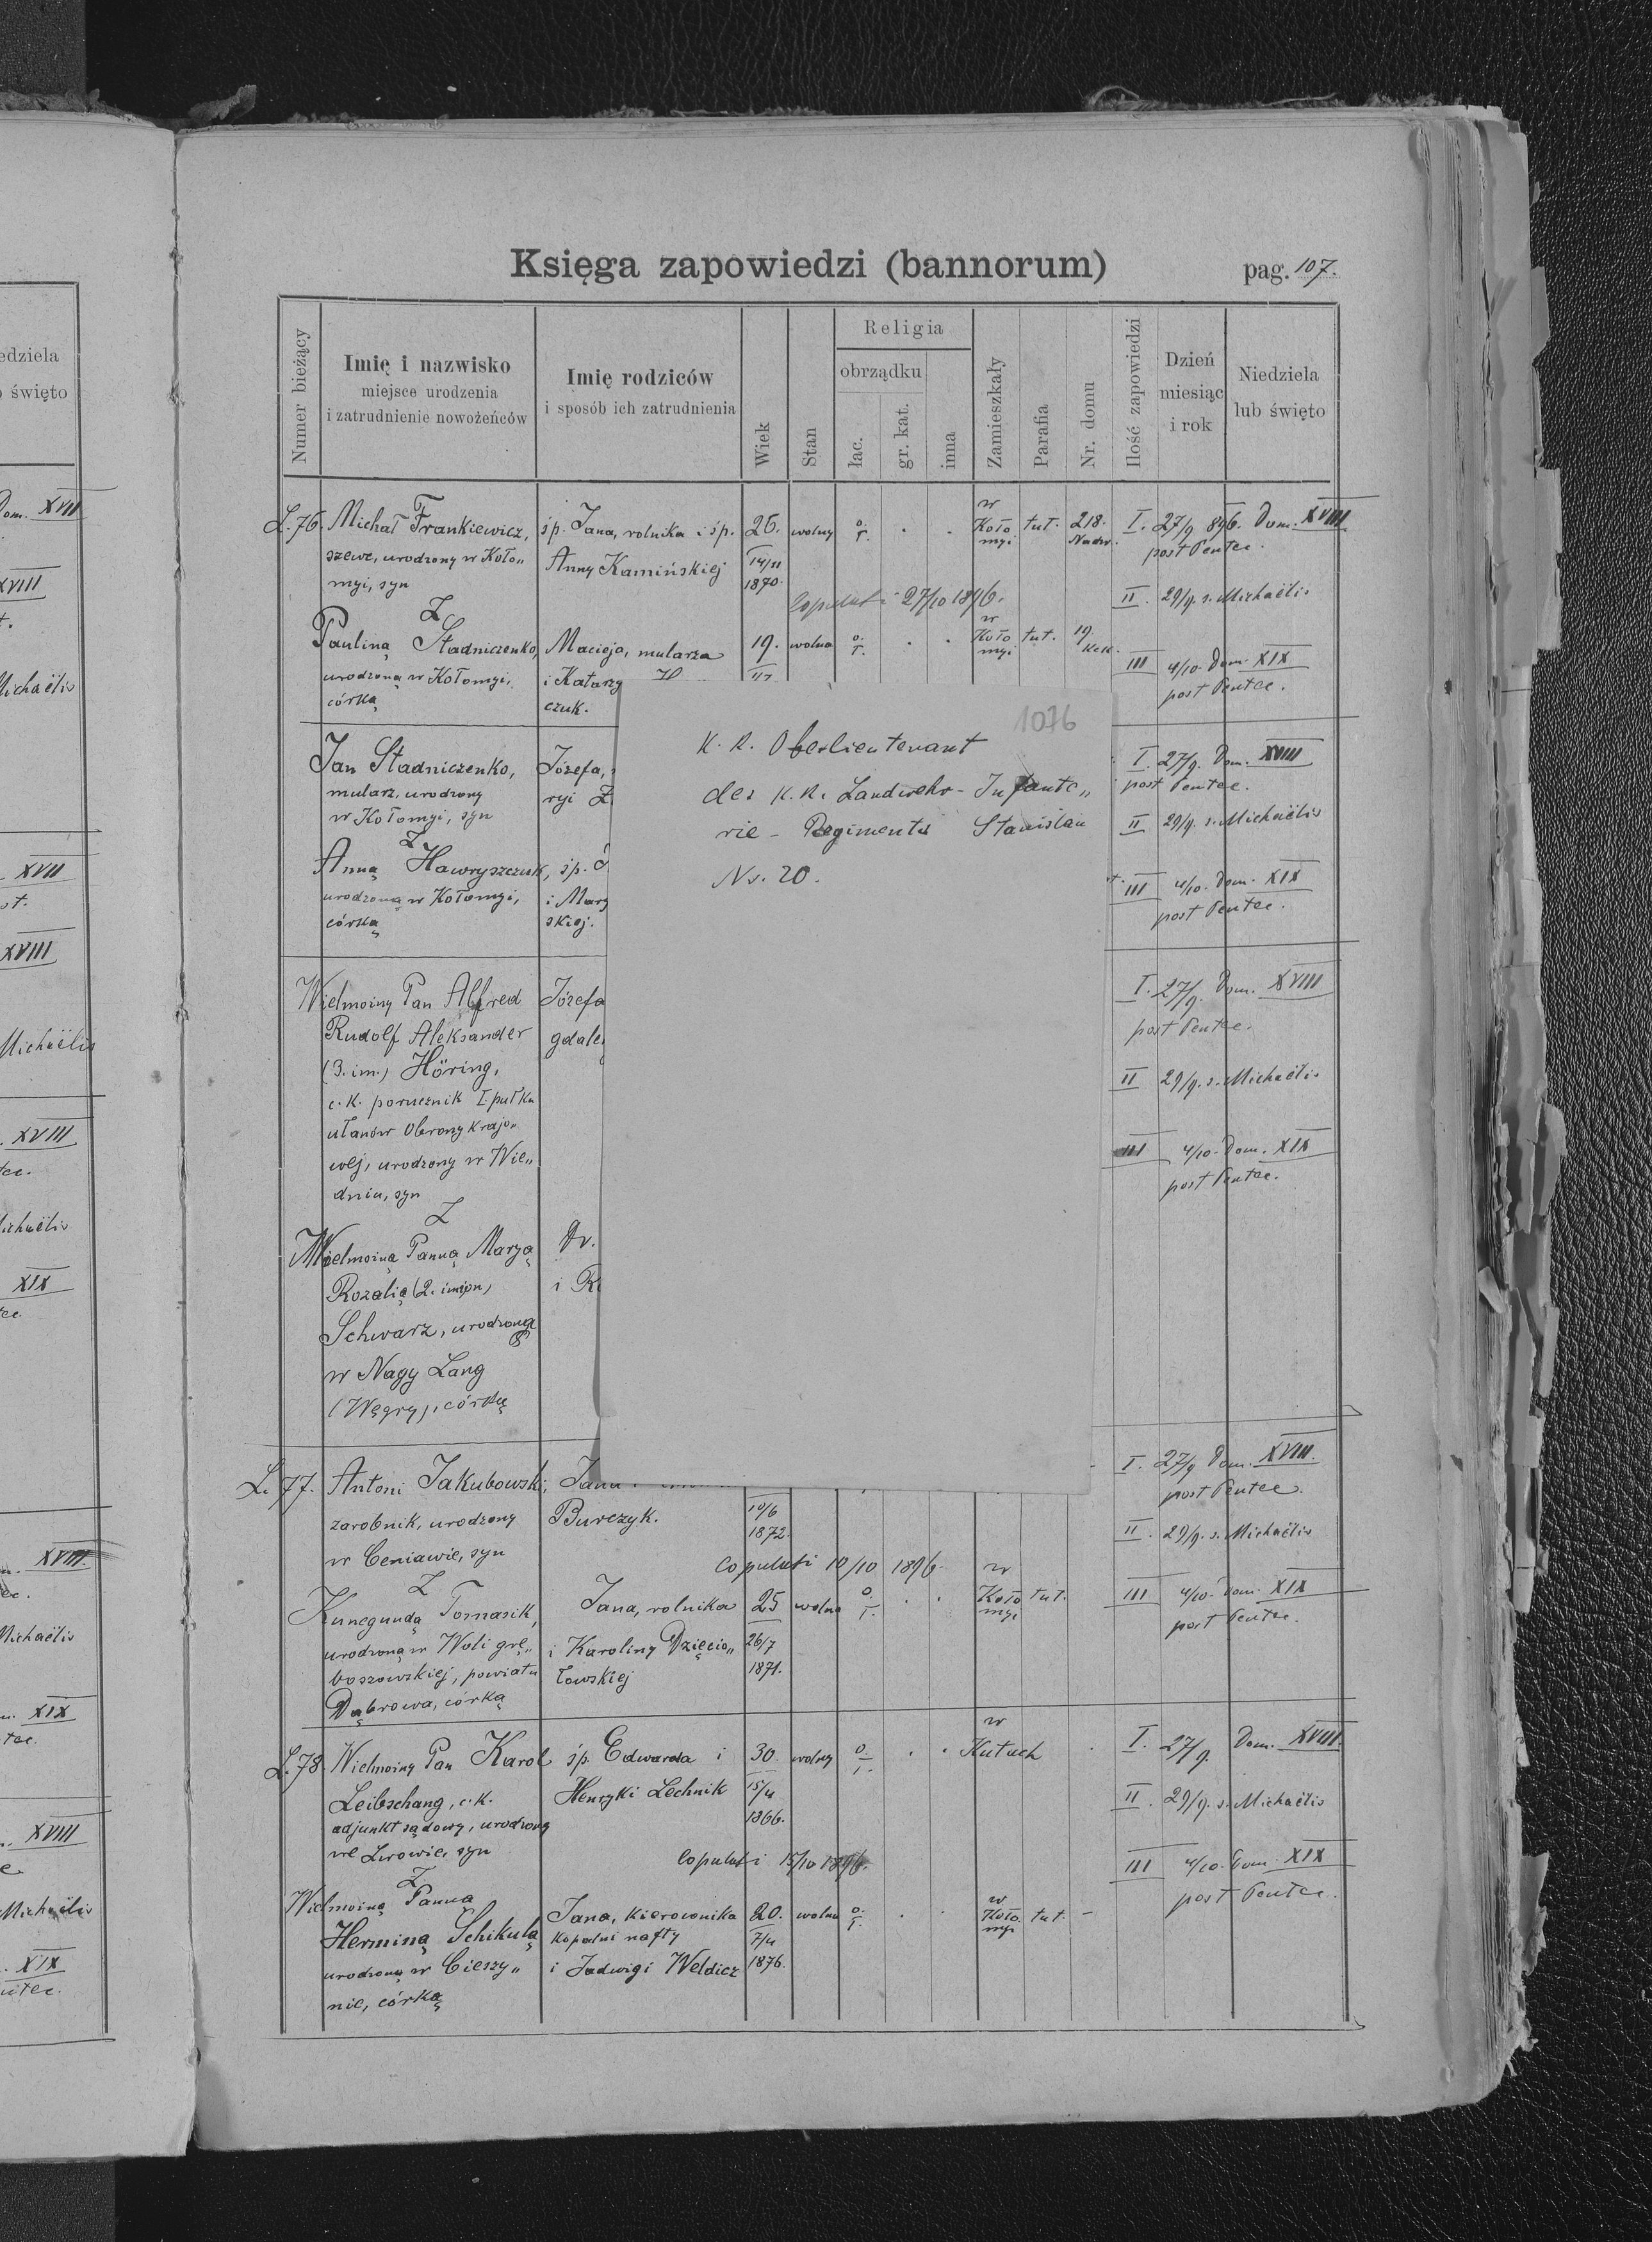 edziela
święto
Dom. XVII
XVIII
Michaëlis
XVII
XVIII
Michaëlis
XVIII
Michaëlis
XIX
XVIII
Michaëlis
XIX
XVIII
Michaëlis
XIX
Księga zapowiedzi (bannorum)
pag. 107.
Numer bieżący
Imię i nazwisko
miejsce urodzenia
i zatrudnienie nowożeńców
Imię rodziców
i sposób ich zatrudnienia
Wiek
Stan
Religia
obrządku
łac.
gr. kat.
inna
Zamieszkały
Parafia
Nr. domu
Ilość zapowiedzi
Dzień
miesiąc
i rok
Niedziela
lub święto
L. 76. Michał Frankiewicz, śp. Jana, rolnika i śp. 26. wolny w Koło tut. 218. I. 27/9 896. Dom. XVIII
szewc, urodzony w Koło„ Anny Kamińskiej 14/11 myi post Pentec.
myi, syn 1870.
Copulati 27/10 1896. II. 29/9. s. Michaëlis
Z
Pauliną Stadniczenko, Macieja, mularza 19. wolna w Koło tut. 19.
urodzoną w Kołomyi, i Katarzy myi III 4/10. Dom. XIX
córką czuk. post Pentec.
1076
K. K. Oberlieutenant
des K. K. Landwehr-Infante„
rie-Regiments Stanislau
Nr. 20.
Jan Stadniczenko, Józefa, I. 27/9. Dom. XVIII
mularz, urodzony ryi post Pentec.
w Kołomyi, syn II 29/9. s. Michaëlis
Z
Anną Hawryszczuk, śp. III 4/10. Dom. XIX
urodzoną w Kołomyi, i Mary post Pentec.
córką skiej.
Wielmożny Pan Alfred Józefa I. 27/9. Dom. XVIII
Rudolf Aleksander gdale post Pentec.
(3. im.) Höring, II 29/9. s. Michaëlis
c. k. porucznik I pułku
ułanów Obrony krajo„
wej, urodzony w Wie„ III 4/10. Dom. XIX
dniu, syn post Pentec.
Z
Wielmożną Panną Maryą Dr.
Rozalią (2. imion) i
Schwarz, urodzoną
w Nagy Lang
(Węgry), córką
L. 77. Antoni Jakubowski, Jana I. 27/9 Dom. XVIII.
zarobnik, urodzony Burczyk. 10/6 post Pentec.
w Ceniawie, syn 1872. II. 29/9. s. Michaëlis
Copulati 10/10 1896.
Z
Kunegundą Tomasik, Jana, rolnika 25 wolna w Koło tut. III 4/10. Dom. XIX
urodzoną w Woli grę„ i Karoliny Dzięcio„ 26/7 myi post Pentec.
boszowskiej, powiatu łowskiej 1871.
Dąbrowa, córką
L. 78. Wielmożny Pan Karol śp. Edwarda i 30. wolny w Kutach I. 27/9. Dom. XVIII.
Leibschang, c. k. Henryki Lechnik 15/4 II. 29/9. s. Michaëlis
adjunkt sądowy, urodzony 1866.
we Lwowie, syn
Copulati 15/10 1896. III 4/10. Dom. XIX
Z post Pentec.
Wielmożną Panną
Herminą Schikulą Jana, kierownika 20. wolna w Koło tut. -
urodzoną w Cieszy„ kopalni nafty 7/4 myi
nie, córką i Jadwigi Weldicz 1876.